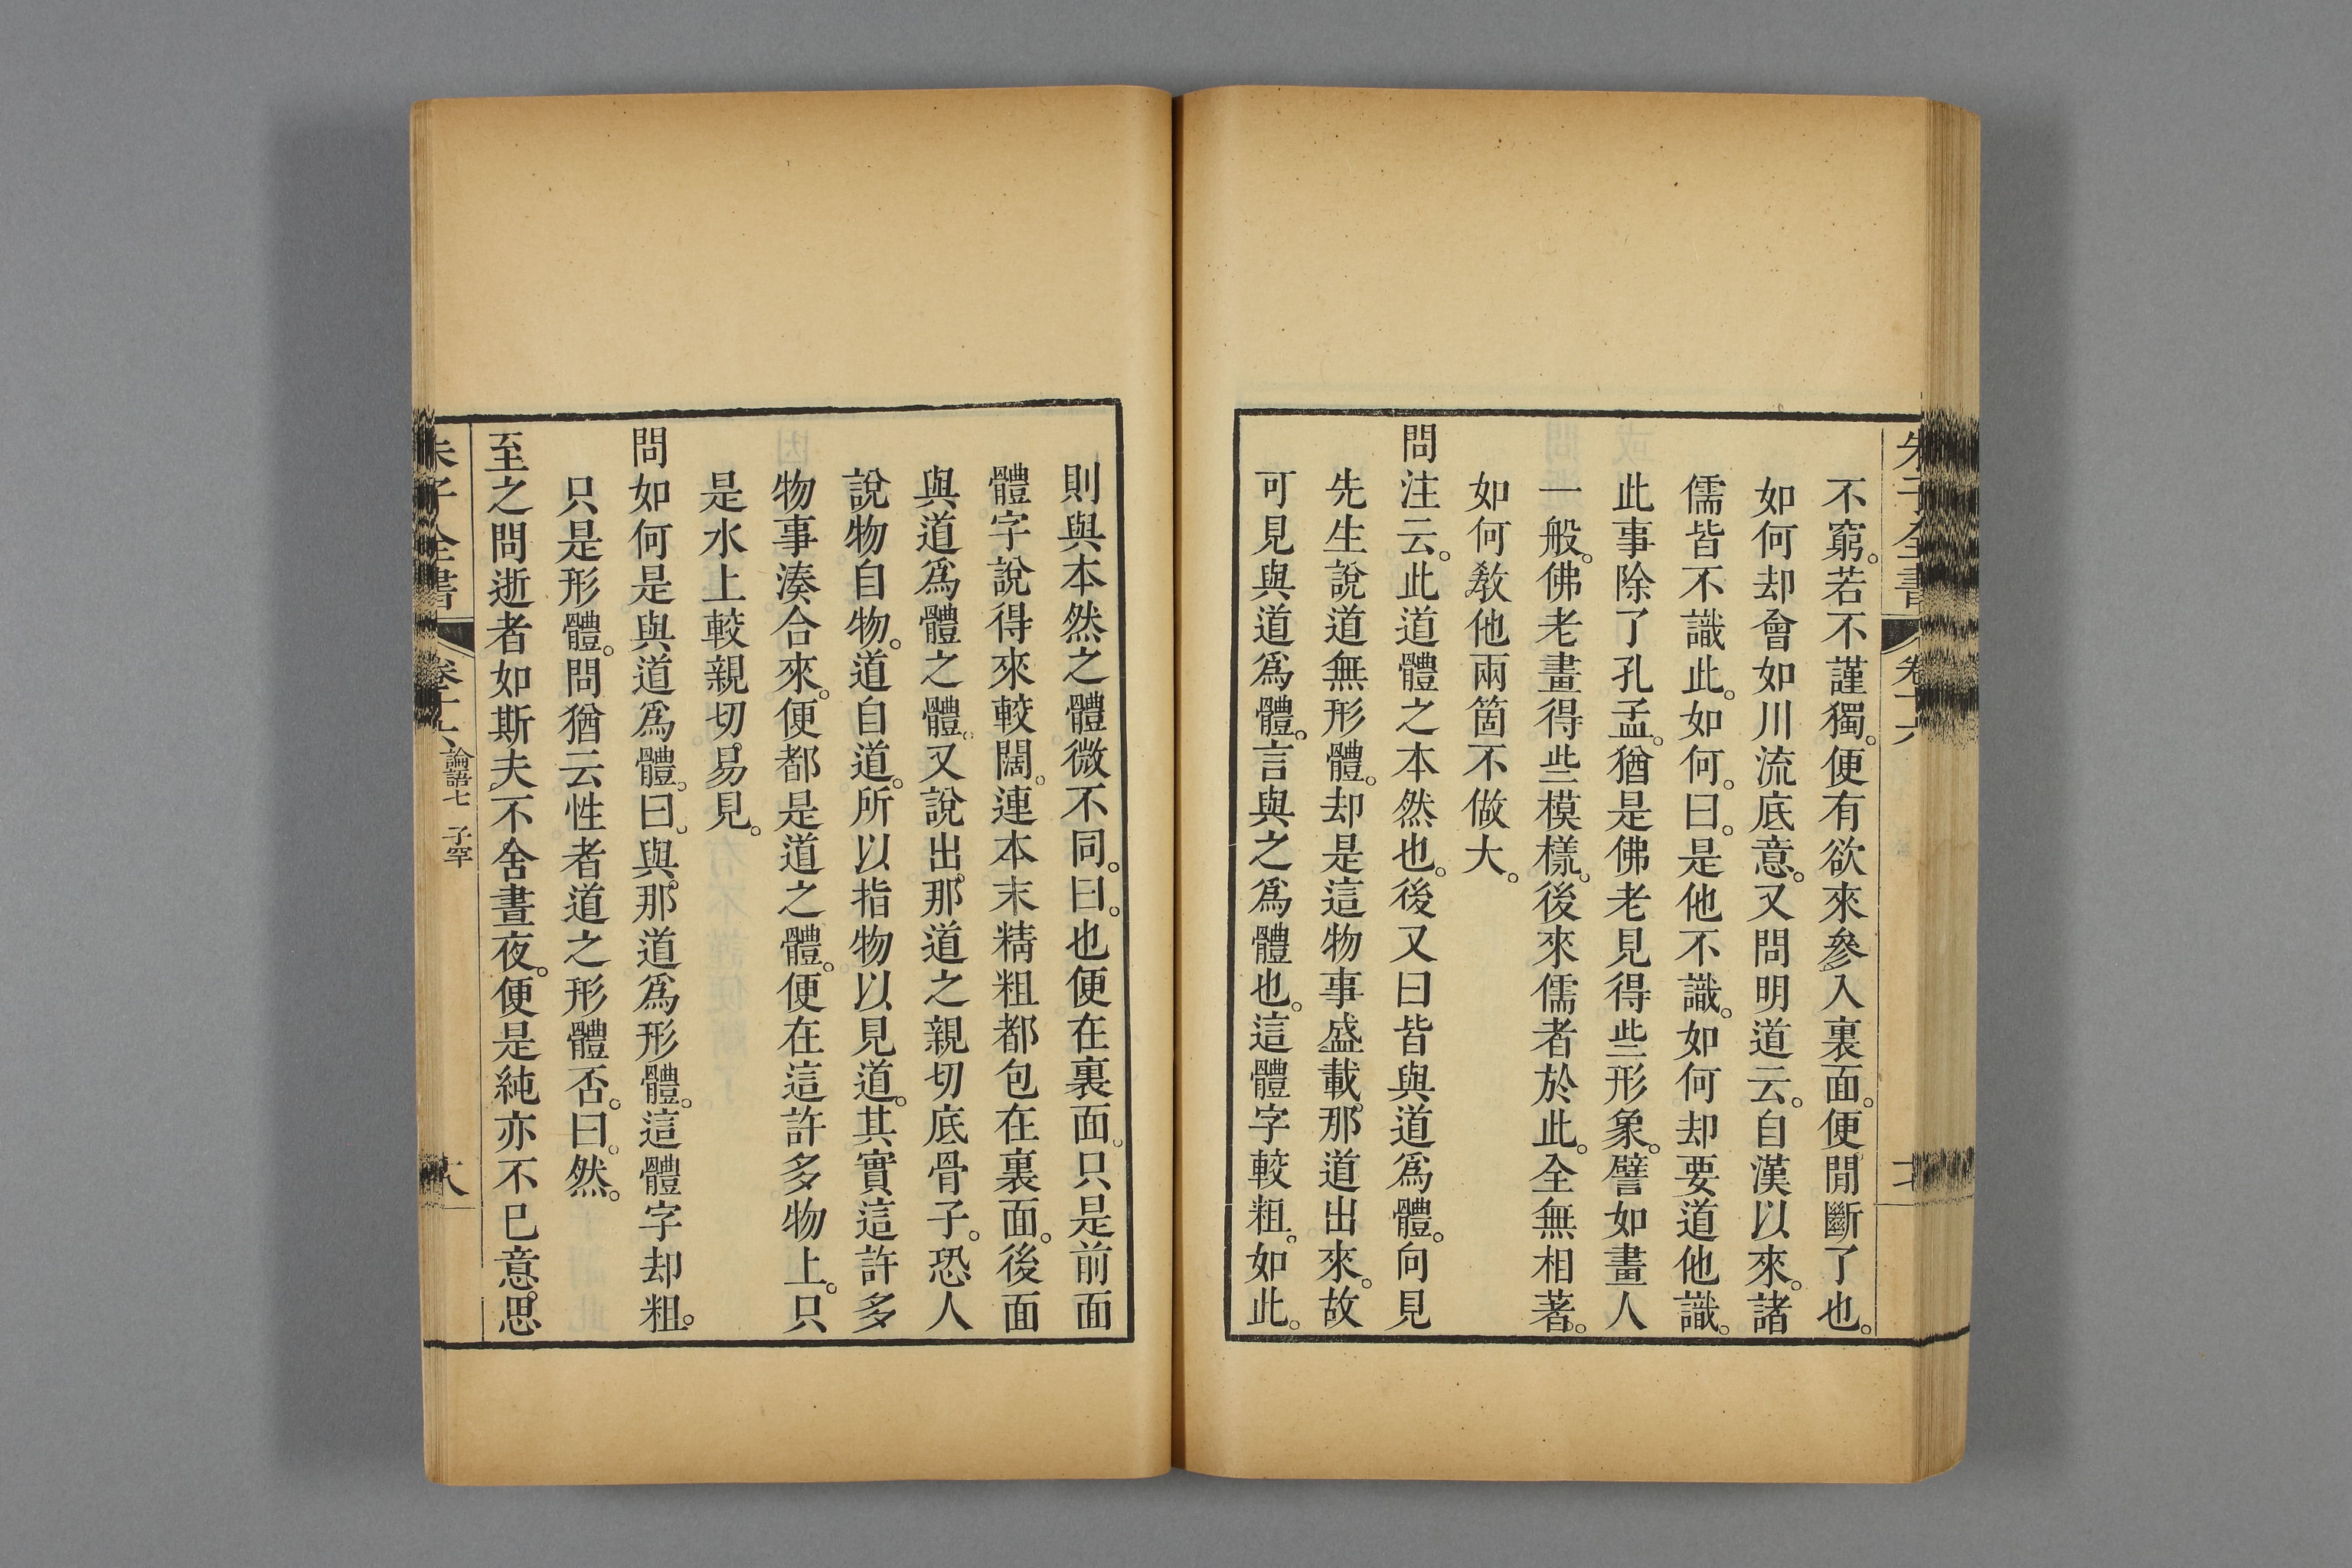 不窮。若不謹獨。便有欲來參入裏面。便閒斷了也。
如何却會如川流底意。又問明道云。自漢以來。諸
儒皆不識此。如何。曰。是他不識。如何却要道他識。
此事除了孔孟。猶是佛老見得些形象。譬如畫人
一般。佛老畫得些模樣。後來儒者於此。全無相著。
如何教他兩箇不做大。
問注云。此道體之本然也。後又曰皆與道爲體。向見
先生說道無形體。却是這物事盛載那道出來。故
可見與道爲體。言與之爲體也。這體字較粗。如此。
則與本然之體微不同。曰。也便在裏面。只是前面
體字說得來較闊。連本末精粗都包在裏面。後面
與道爲體之體。又說出那道之親切底骨子。恐人
說物自物。道自道。所以指物以見道。其實這許多
物事湊合來。便都是道之體。便在這許多物上。只
是水上較親切易見。
問如何是與道爲體。曰。與那道爲形體。這體字却粗。
只是形體。問猶云性者道之形體否。曰。然。
至之問逝者如斯夫不舍晝夜。便是純亦不已意思
朱子全書 卷十六 論語七 子罕